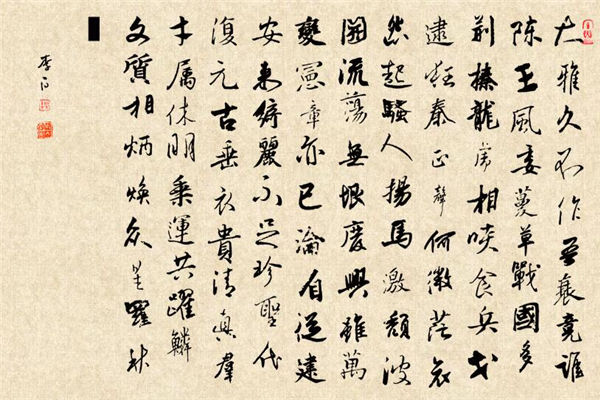 大雅久不作吾衰竟誰
陳王風委蔓草戰國多
荊榛龍虎相啖食兵戈
逮狂秦正聲何微茫哀
怨起騷人揚馬激頹波
開流蕩無垠廢興雖萬
變憲章亦已淪自從建
安來綺麗不足珍聖代
復元古垂衣貴清真羣
才属休明乘運共躍鱗
文質相炳煥眾星羅秋
李白